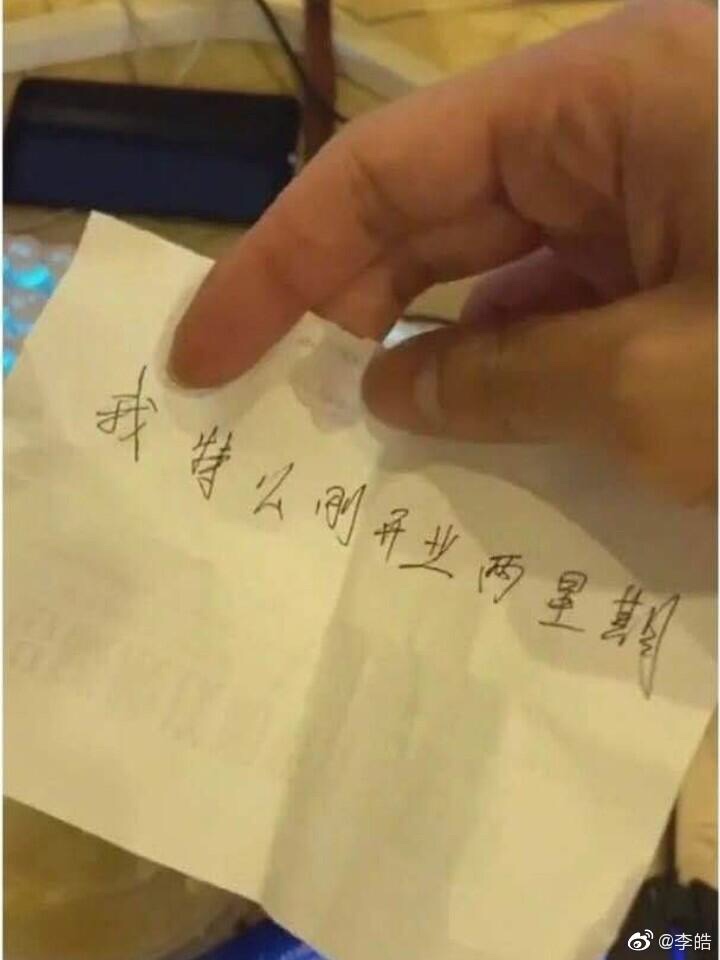 我特么刚开业两星期
@李皓